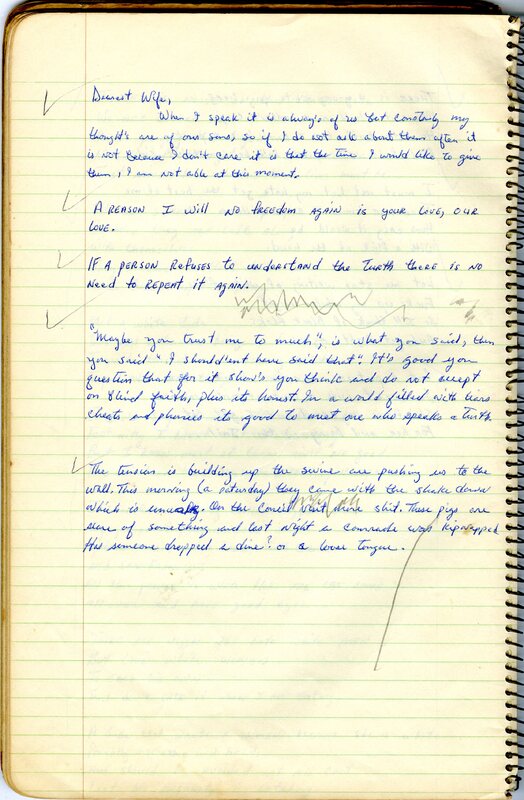 Dearest Wife,
When I speak it is always of us but constantly my
thought's are of our sons, so if I do not ask about them often it
is not because I don't care it is that the time I would like to give
them, I am not able at this moment.
A REASON I WILL NO FREEDOM AGAIN IS YOUR LOVE, OUR
LOVE.
IF A PERSON REFUSES TO UNDERSTAND THE TURTH THERE IS NO
NEED TO REPEAT IT AGAIN.
"Maybe you trust me to much", is what you said, then
you said "I should'ent have said that". It's good you
question that for it show's you think and do not accept
on blind faith, plus its honest. In a world filled with liars
cheats and phonies it good to meet one who speaks a Turth.
The tension is building up the swine are pushing us to the
wall. This morning (a Saturday) they came with the shake down
which is On the shit. These pigs are
of something and last night a comrade was kidnapped
Has someone dropped a dime? or a loose tongue.